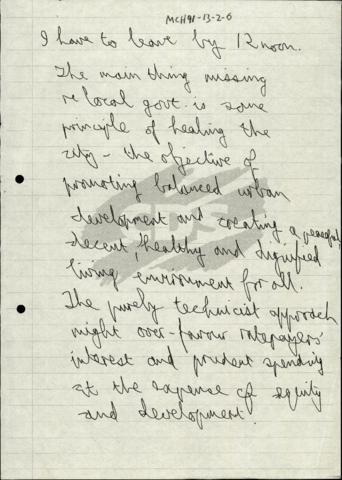 MCH91-13-2-6
I have to leave by 12 noon.
The main thing missing
re local govt. is some
principle of healing the
city - the objective of
promoting balanced urban
development and creating a peaceful,
decent, healthy and dignified
living environment for all.
The purely technicist approach
might over-favour ratepayers'
interest and prudent spending
at the expense of equity
and development.